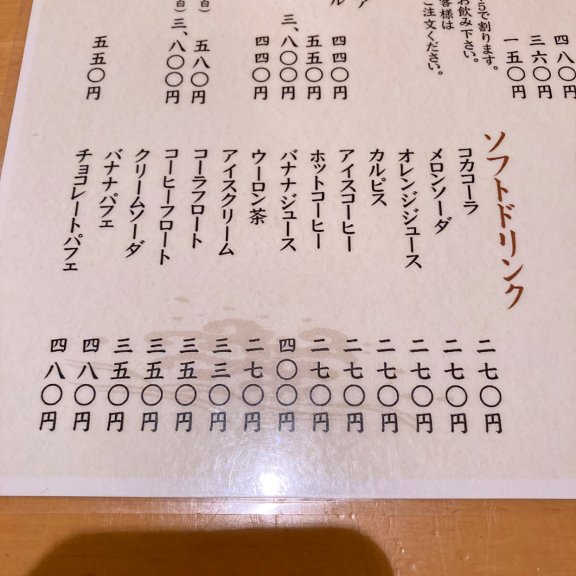 四八〇円
三六〇円
一五〇円
5で割ります。
お飲み下さい。
客様は
ご注文ください。
ル 四四〇円
五五〇円
三、八〇〇円
四四〇円
白） 五八〇円
白） 三、八〇〇円
五五〇円
ソフトドリンク
コカコーラ 二七〇円
メロンソーダ 二七〇円
オレンジジュース 二七〇円
カルピス 二七〇円
アイスコーヒー 二七〇円
ホットコーヒー 二七〇円
バナナジュース 四〇〇円
ウーロン茶 二七〇円
アイスクリーム 三三〇円
コーラフロート 三五〇円
コーヒーフロート 三五〇円
クリームソーダ 三五〇円
バナナパフェ 四八〇円
チョコレートパフェ 四八〇円